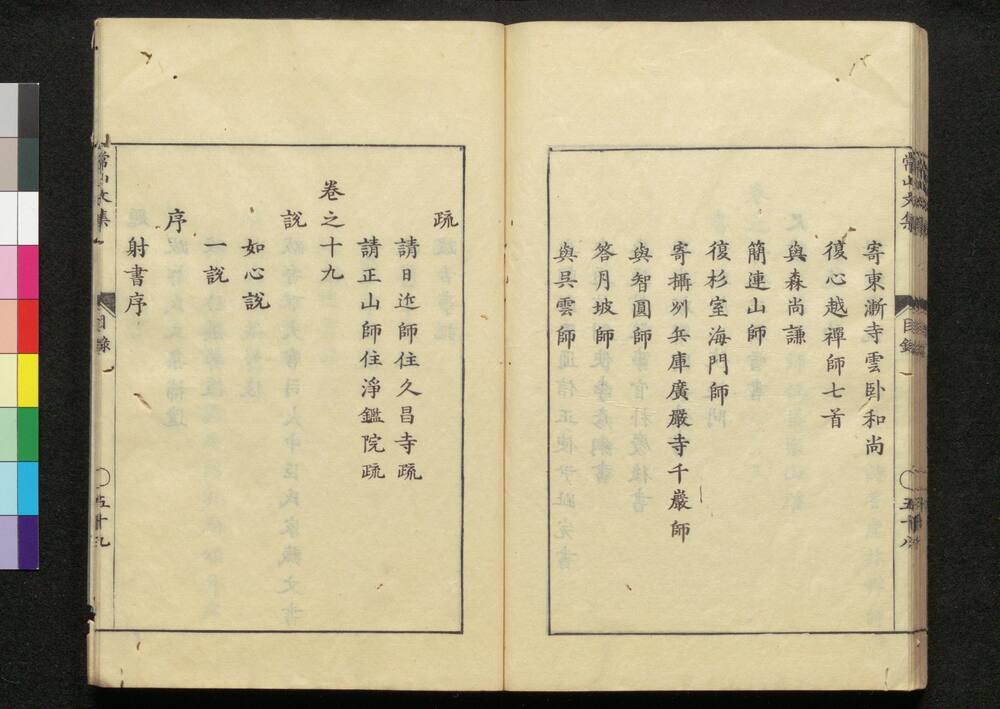 寄東漸寺雲卧和尚
復心越禪師七首
與森尚謙
簡連山師
復杉室海門師
寄攝州兵庫廣嚴寺千巖師
與智圓師
答月坡師
與吴雲師
常山文集
目錄
五十八
疏
請日近師住久昌寺疏
請正山師住淨鑑院疏
卷之十九
說
如心說
一說
序
射書序
常山文集
目錄
五十九